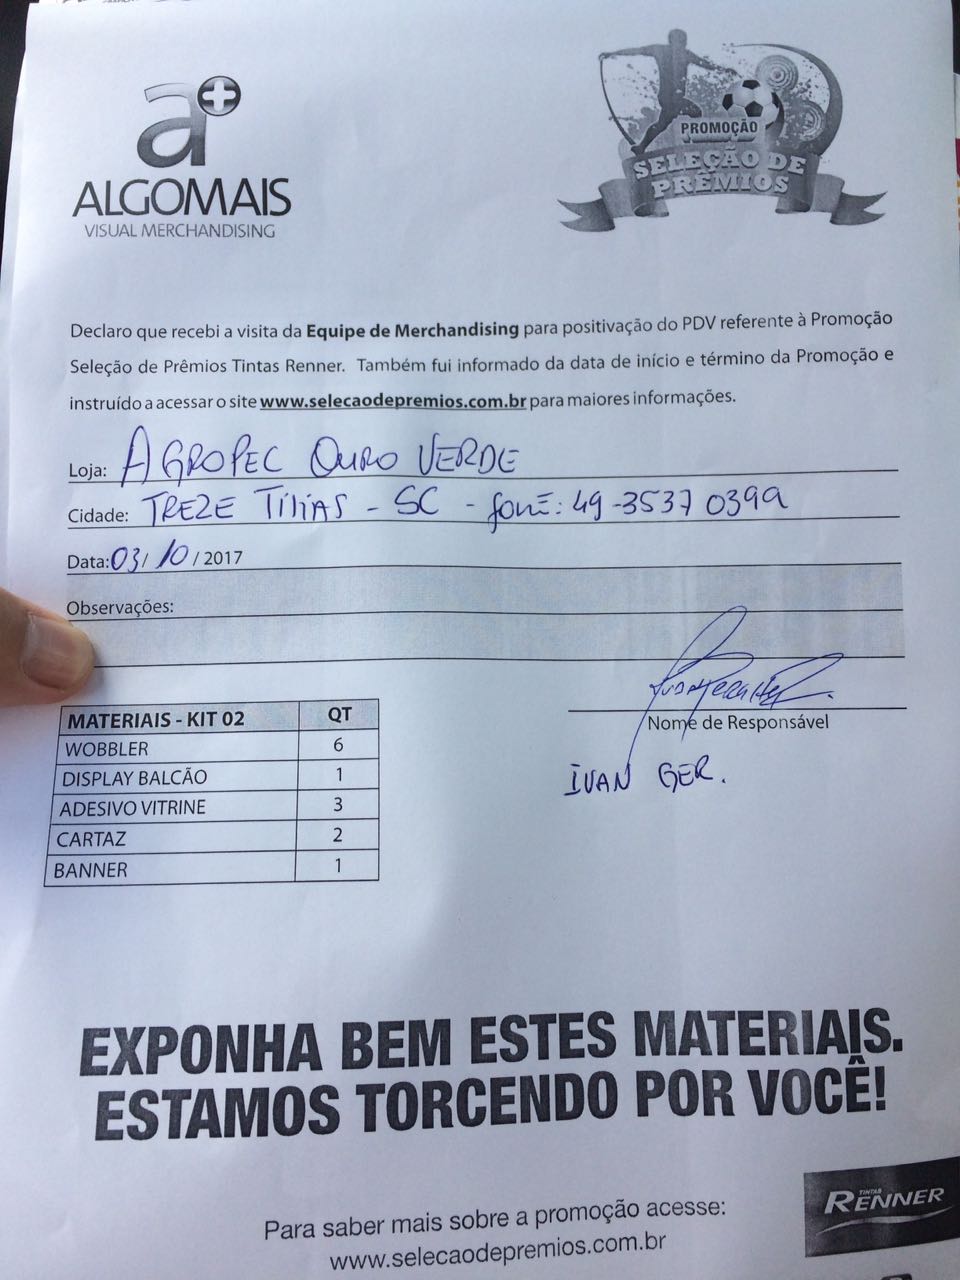 a+
ALGOMAIS
VISUAL MERCHANDISING
PROMOÇÃO
SELEÇÃO DE
PRÊMIOS
Declaro que recebi a visita da Equipe de Merchandising para positivação do PDV referente à Promoção
Seleção de Prêmios Tintas Renner. Também fui informado da data de início e término da Promoção e
instruído a acessar o site www.selecaodepremios.com.br para maiores informações.
Loja: AGROPEC OURO VERDE
Cidade: TREZE TÍLIAS - SC - fone: 49-3537 0399
Data: 03/ 10 / 2017
Observações:
Nome de Responsável
IVAN GER.
MATERIAIS - KIT 02 QT
WOBBLER 6
DISPLAY BALCÃO 1
ADESIVO VITRINE 3
CARTAZ 2
BANNER 1
EXPONHA BEM ESTES MATERIAIS.
ESTAMOS TORCENDO POR VOCÊ!
TINTAS
RENNER
Para saber mais sobre a promoção acesse:
www.selecaodepremios.com.br